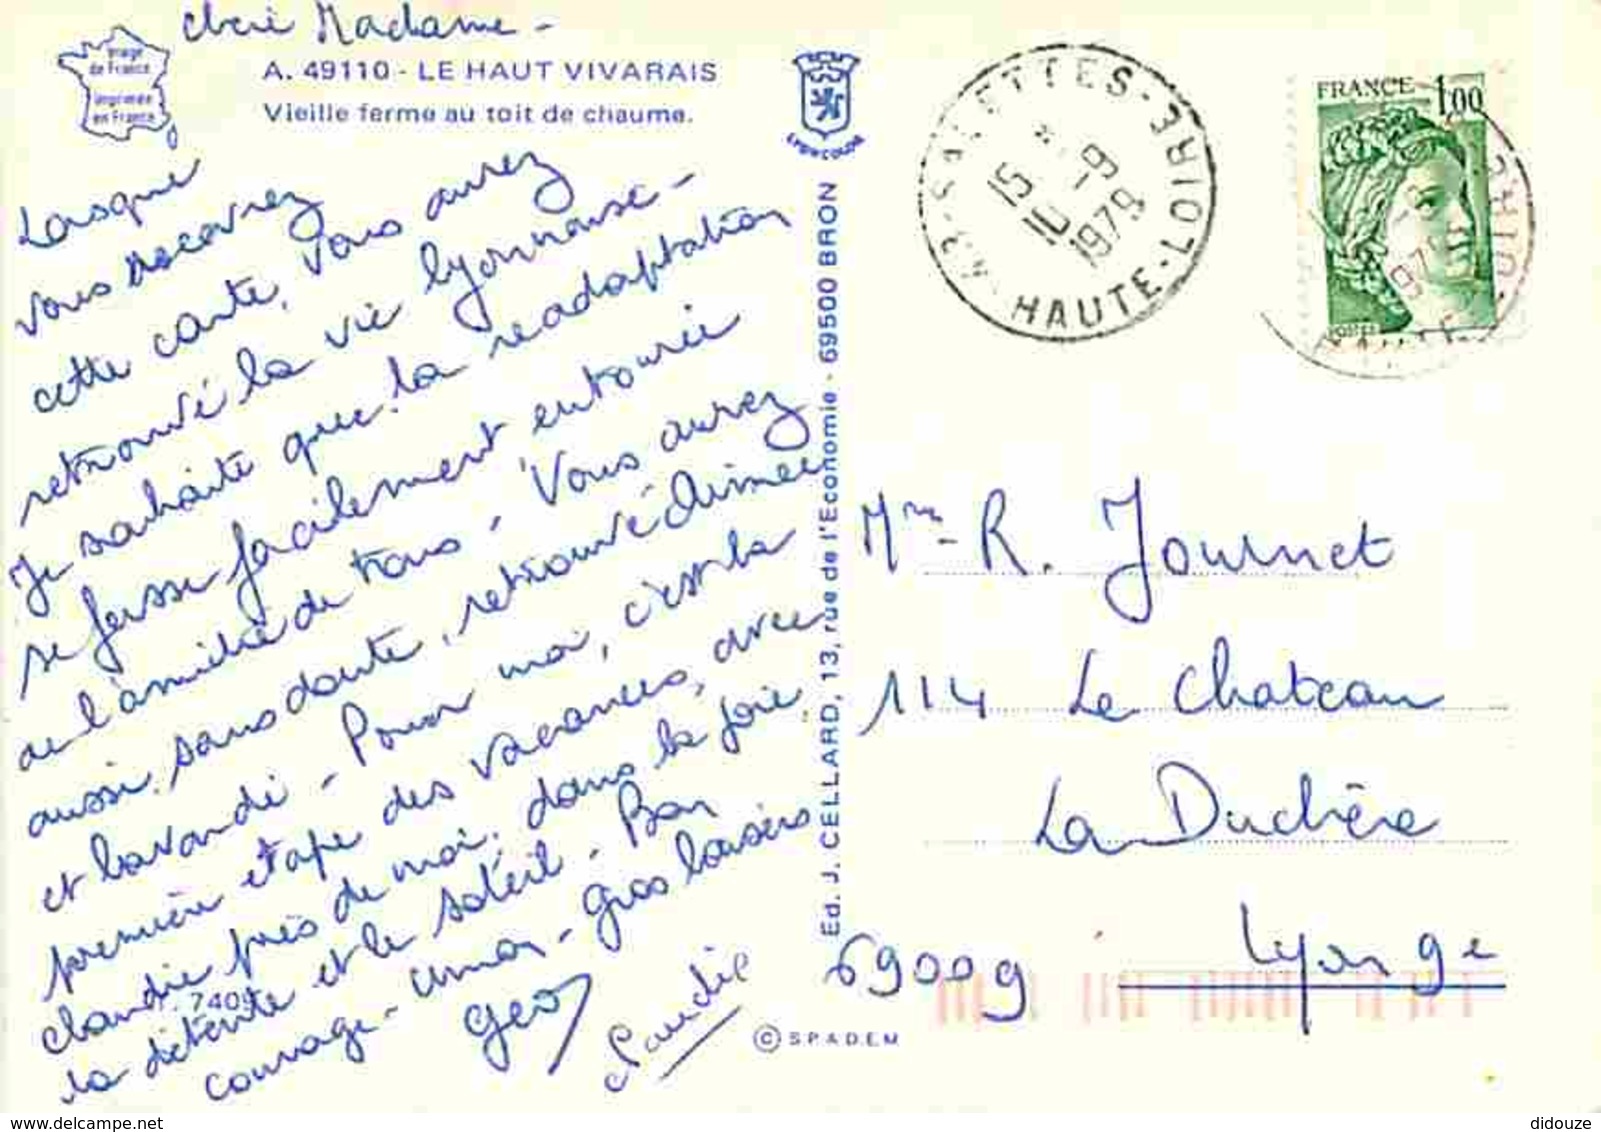 chère Madame -
Image
de France
imprimée
en France
A. 49110 - LE HAUT VIVARAIS
Vieille ferme au toit de chaume.
LYONCOLOR
Lorsque
vous recevrez
cette carte, vous aurez
retrouvé la vie lyonnaise -
Je souhaite que la readaptation
se fasse facilement entourée
de l'amitié de tous - Vous aurez
aussi, sans doute, retrouvé Aimée
et - Pour moi, c'est la
première étape des vacances, avec
claudie près de moi, dans la joie
la détente et le soleil - Bon
courage - amon - Gros baisers
Geo
Claudie
7409
Ed. J. CELLARD, 13, rue de l'Economie - 69500 BRON
© SPADEM
43 - SALETTES - HAUTE-LOIRE
15 H
10 -9
1979
FRANCE 1,00
POSTES
Mme R. Journet
114 Le Chateau
La Duchère
69009 Lyon 9e
didouze